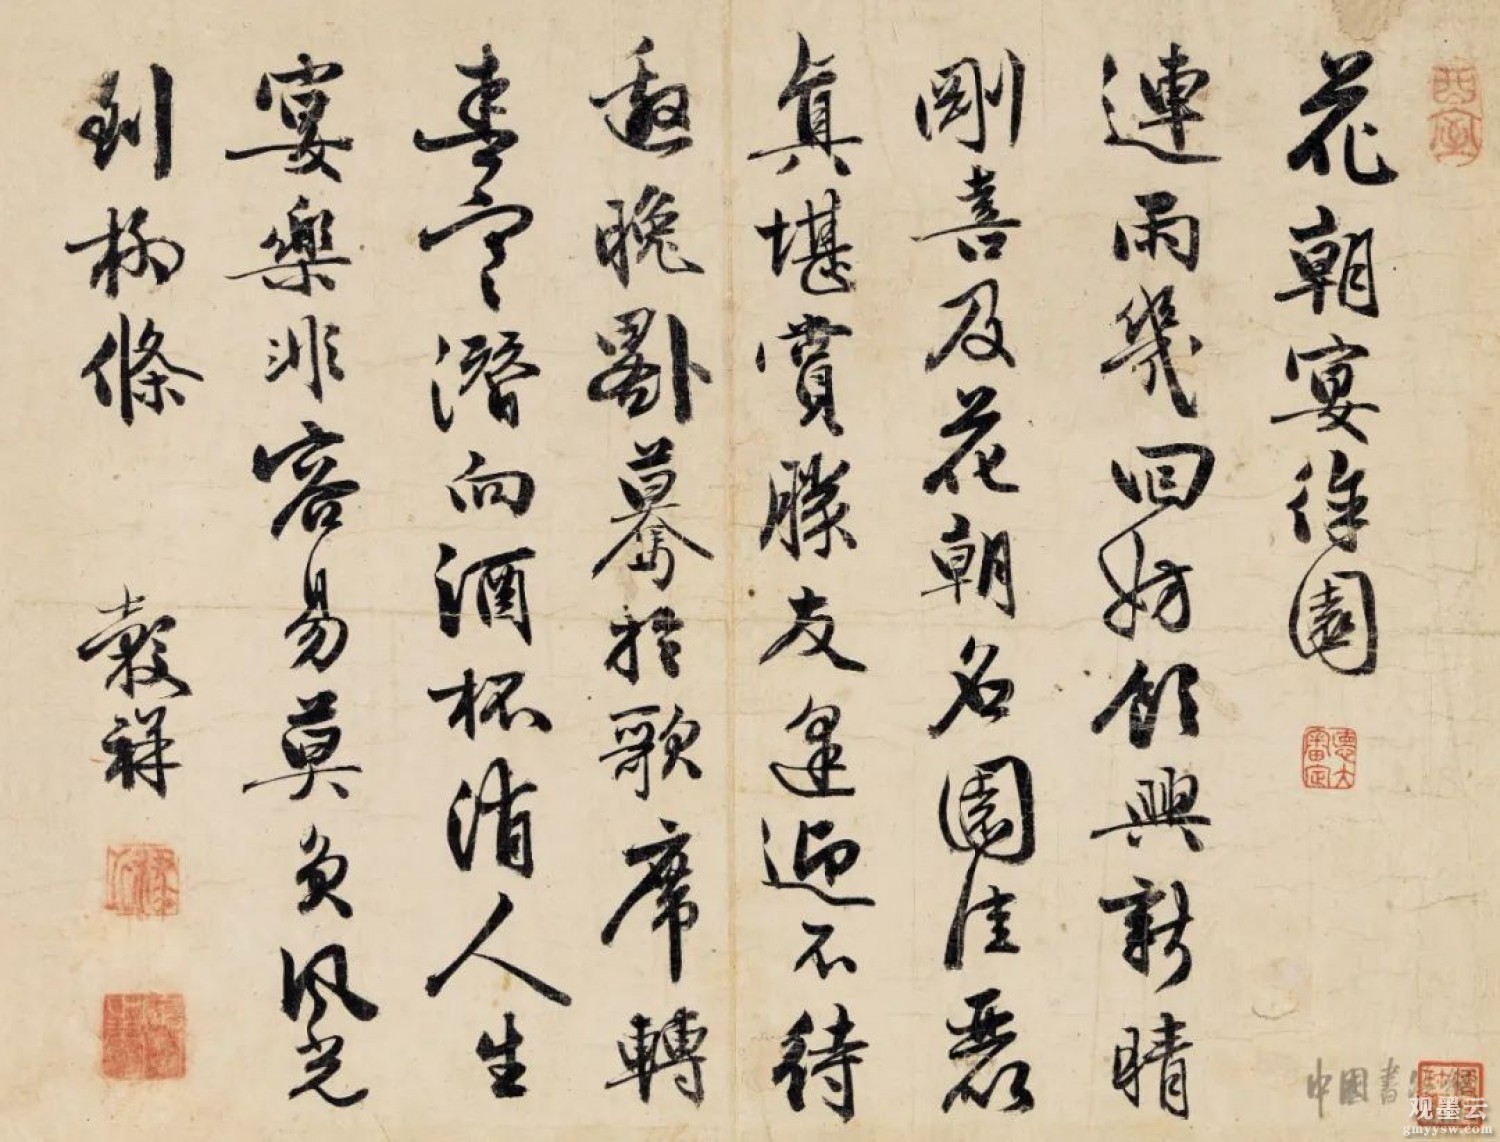 花朝宴徐園
連雨幾回妨飲興新晴
剛喜及花朝名園佳麗
真堪賞勝友逢迎不待
邀晚驀於歌席轉
春寒潛向酒杯消人生
宴樂非容易莫負風光
到柳條
穀祥
德大審定
中國書
观墨云
gmyysw.com